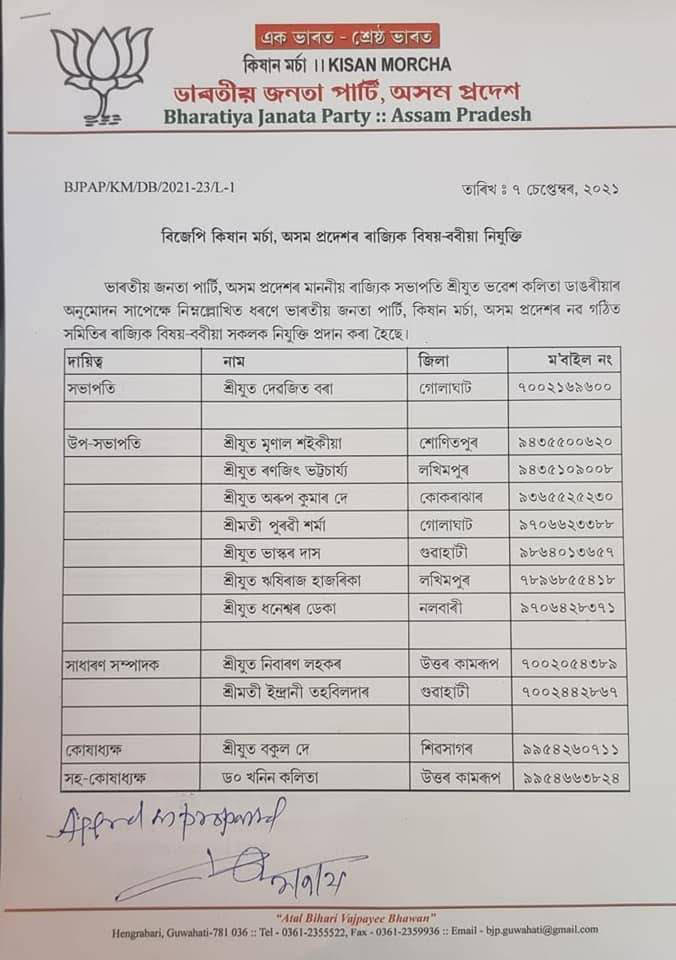 এক ভাৰত - শ্ৰেষ্ঠ ভাৰত
কিষান মৰ্চা ।। KISAN MORCHA
ভাৰতীয় জনতা পাৰ্টি, অসম প্ৰদেশ
Bharatiya Janata Party :: Assam Pradesh
BJPAP/KM/DB/2021-23/L-1 তাৰিখ ঃ ৭ চেপ্তেম্বৰ, ২০২১
বিজেপি কিষান মৰ্চা, অসম প্ৰদেশৰ ৰাজ্যিক বিষয়-ববীয়া নিযুক্তি
ভাৰতীয় জনতা পাৰ্টি, অসম প্ৰদেশৰ মাননীয় ৰাজ্যিক সভাপতি শ্ৰীযুত ভৱেশ কলিতা ডাঙৰীয়াৰ
অনুমোদন সাপেক্ষে নিম্নল্লোখিত ধৰণে ভাৰতীয় জনতা পাৰ্টি, কিষান মৰ্চা, অসম প্ৰদেশৰ নৱ গঠিত
সমিতিৰ ৰাজ্যিক বিষয়-ববীয়া সকলক নিযুক্তি প্ৰদান কৰা হৈছে।
দায়িত্ব নাম জিলা ম'বাইল নং
সভাপতি শ্ৰীযুত দেৱজিত বৰা গোলাঘাট ৭০০২১৬৯৬০০
উপ-সভাপতি শ্ৰীযুত মৃণাল শইকীয়া শোণিতপুৰ ৯৪৩৫৫০০৬২০
শ্ৰীযুত ৰণজিৎ ভট্টচাৰ্য্য লখিমপুৰ ৯৪৩৫১০৯০০৮
শ্ৰীযুত অৰুপ কুমাৰ দে কোকৰাঝাৰ ৯৩৬৫৫২৫২৩০
শ্ৰীমতী পুৰবী শৰ্মা গোলাঘাট ৯৭০৬৬২৩৩৮৮
শ্ৰীযুত ভাস্কৰ দাস গুৱাহাটী ৯৮৬৪০১৩৬৫৭
শ্ৰীযুত ঋষিৰাজ হাজৰিকা লখিমপুৰ ৭৮৯৬৮৫৫৪১৮
শ্ৰীযুত ধনেশ্বৰ ডেকা নলবাৰী ৯৭০৬৪২৮৩৭১
সাধাৰণ সম্পাদক শ্ৰীযুত নিবাৰণ লহকৰ উত্তৰ কামৰূপ ৭০০২০৫৪৩৮৯
শ্ৰীমতী ইন্দ্ৰানী তহবিলদাৰ গুৱাহাটী ৭০০২৪৪২৮৬৭
কোষাধ্যক্ষ শ্ৰীযুত বকুল দে শিৱসাগৰ ৯৯৫৪২৬০৭১১
সহ-কোষাধ্যক্ষ ড০ খনিন কলিতা উত্তৰ কামৰূপ ৯৯৫৪৬৬৩৮২৪
"Atal Bihari Vajpayee Bhawan"
Hengrabari, Guwahati-781 036 :: Tel - 0361-2355522, Fax - 0361-2359936 :: Email - bjp.guwahati@gmail.com